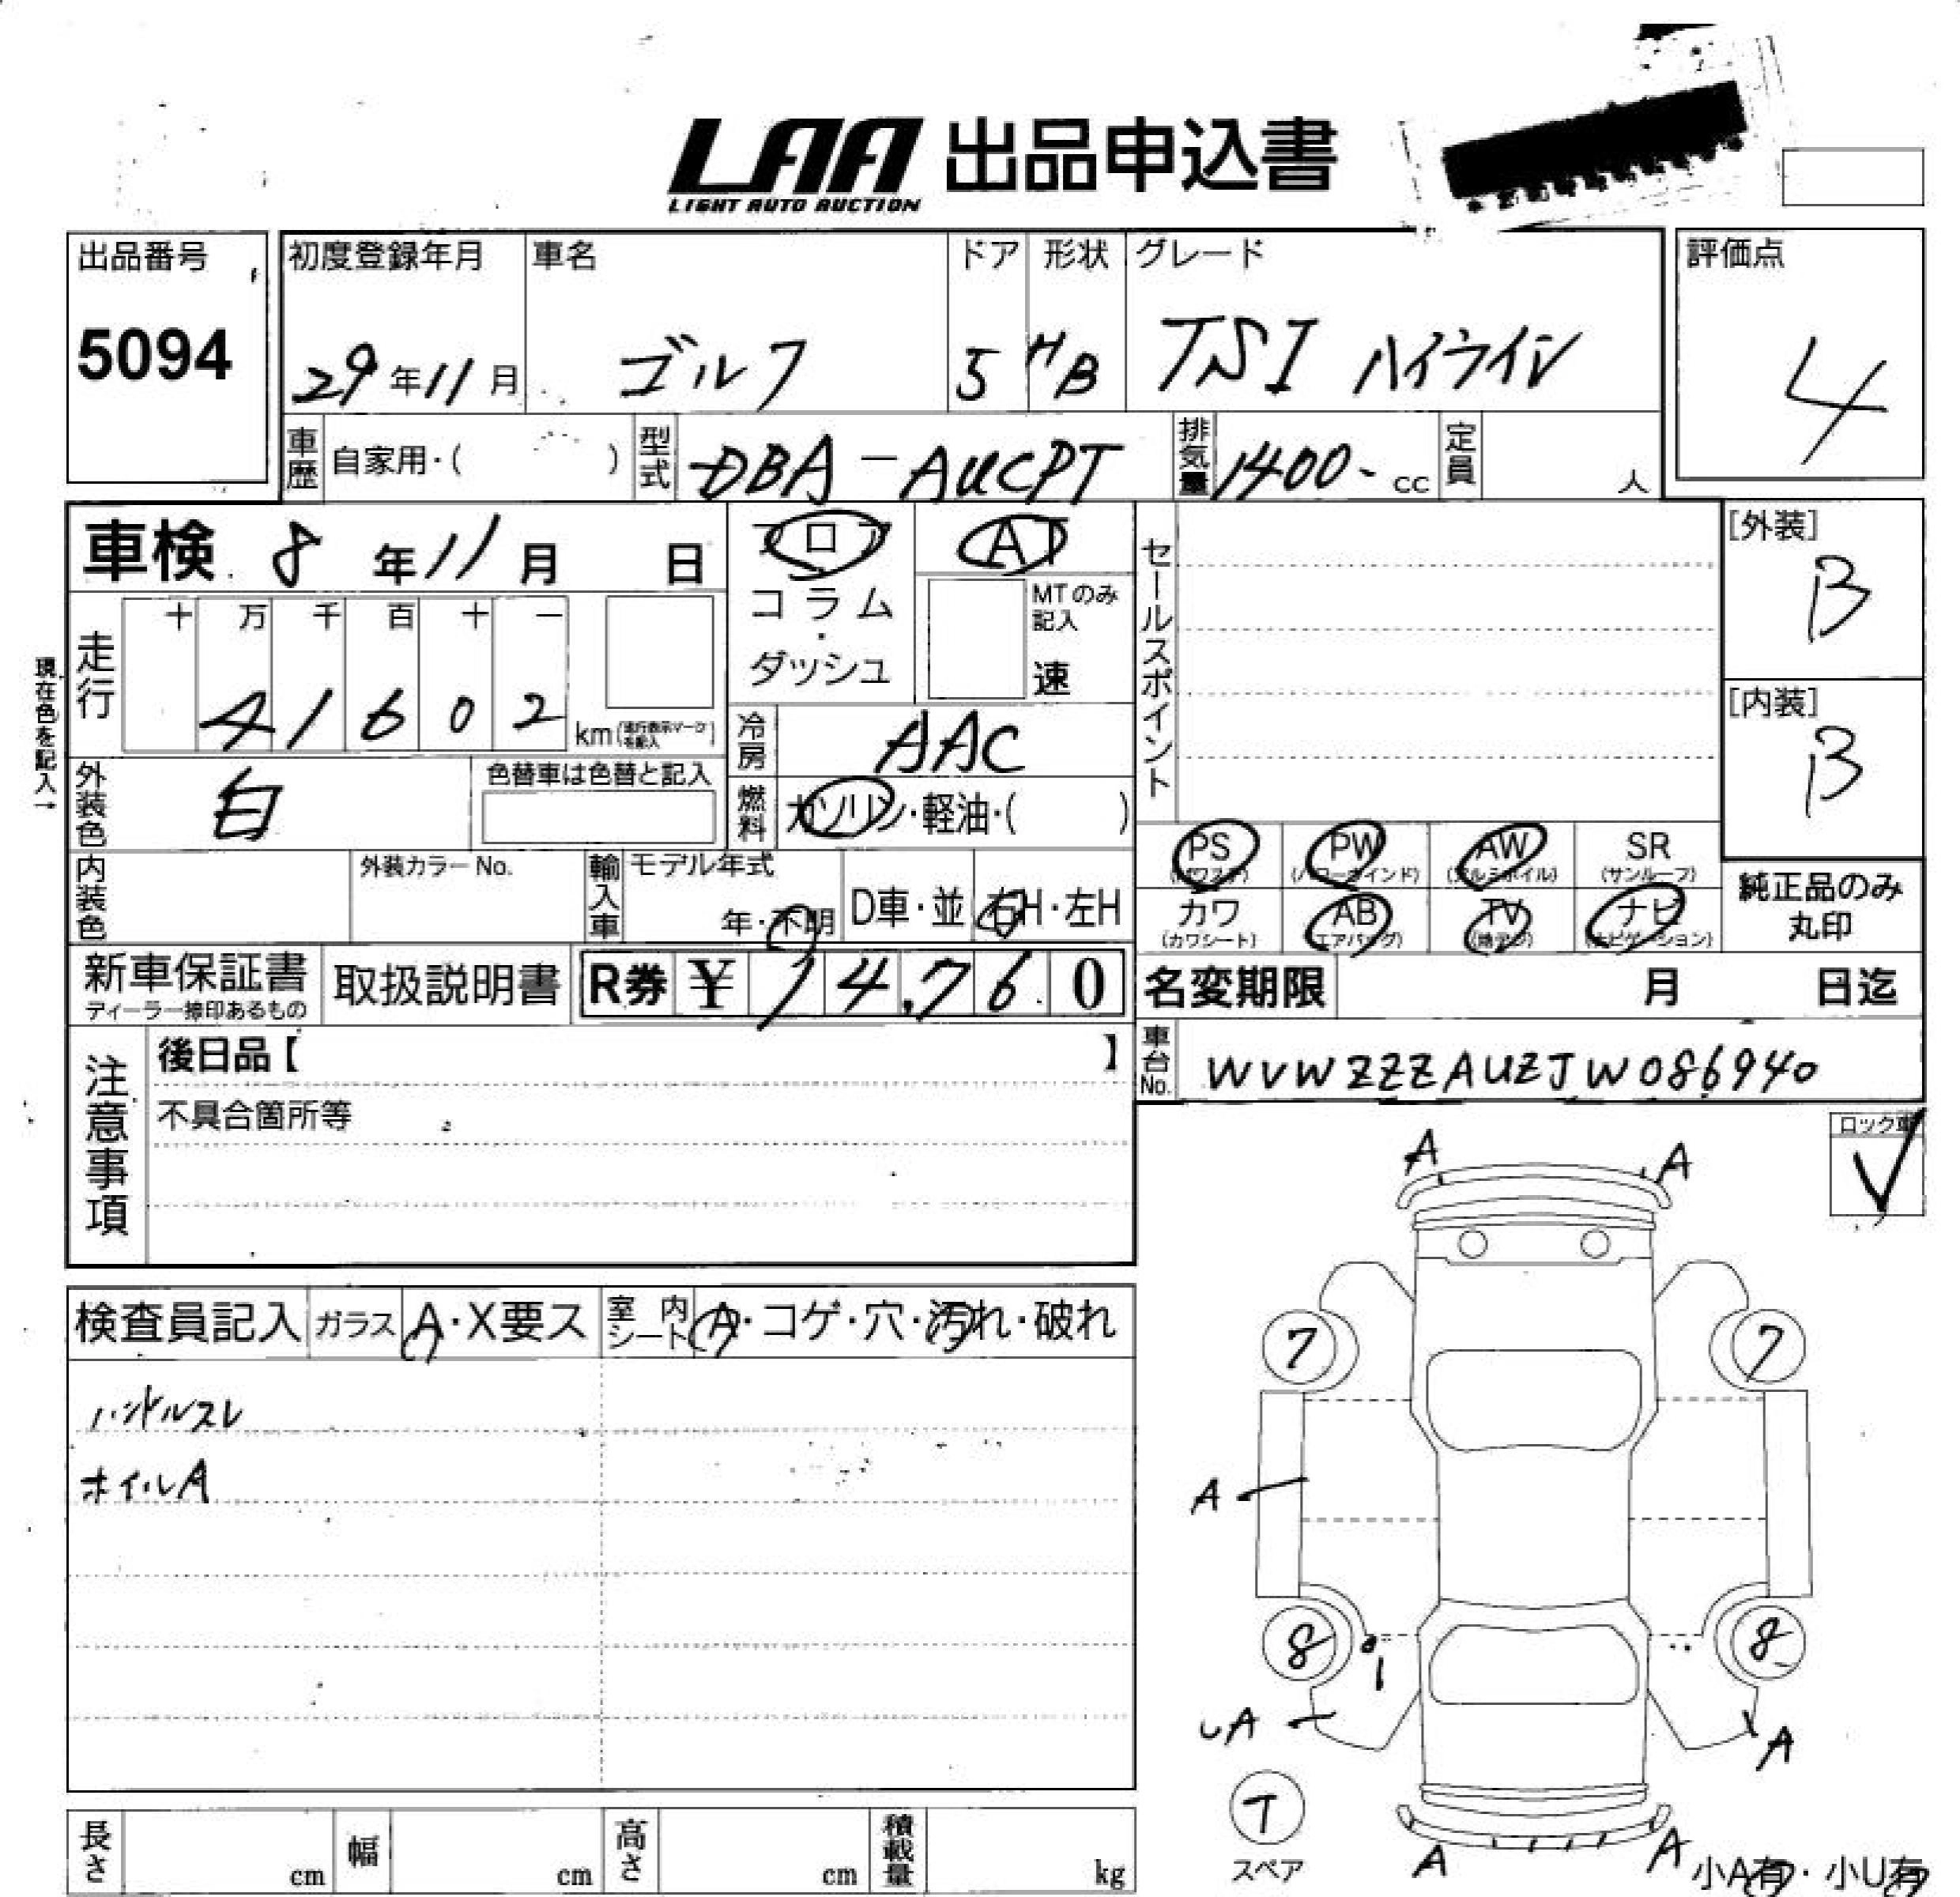 LAA 出品申込書
LIGHT AUTO AUCTION
出品番号
5094
初度登録年月 車名 ドア 形状 グレード
29年11月 ゴルフ 5 HB TSI ハイライン
評価点
4
車歴 自家用・( ) 型式 DBA-AUCPT 排気量 1400- cc 定員 人
車検 8年11月 日
フロア
コラム
・
ダッシュ
AT
MTのみ
記入
速
セールスポイント
[外装]
B
[内装]
B
現在色を記入→
走行
十 万 千 百 十 一
4 1 6 0 2 km(走行表示マークを記入)
冷房 AAC
外装色 白 色替車は色替と記入
燃料 ガソリン・軽油・( )
PS PW AW SR
(パワステ) (パワーウインド) (アルミホイル) (サンルーフ)
カワ AB TV ナビ
(カワシート) (エアバッグ) (地デジ) (ナビゲーション)
純正品のみ
丸印
内装色 外装カラーNo. 輸入車 モデル年式
年・不明 D車・並 右H・左H
新車保証書
ディーラー捺印あるもの
取扱説明書 R券 ¥ 14,760
名変期限 月 日迄
車台No. WVWZZZAUZJW086940
注意事項
後日品【 】
不具合箇所等
ロック車
✓
検査員記入 ガラス A・X要ス 室内シート A・コゲ・穴・汚れ・破れ
ハンドルスレ
ホイルA
A A
7 7
A
8 8
1
UA A
T
スペア
A A
小A有・小U有
長さ cm 幅 cm 高さ cm 積載量 kg